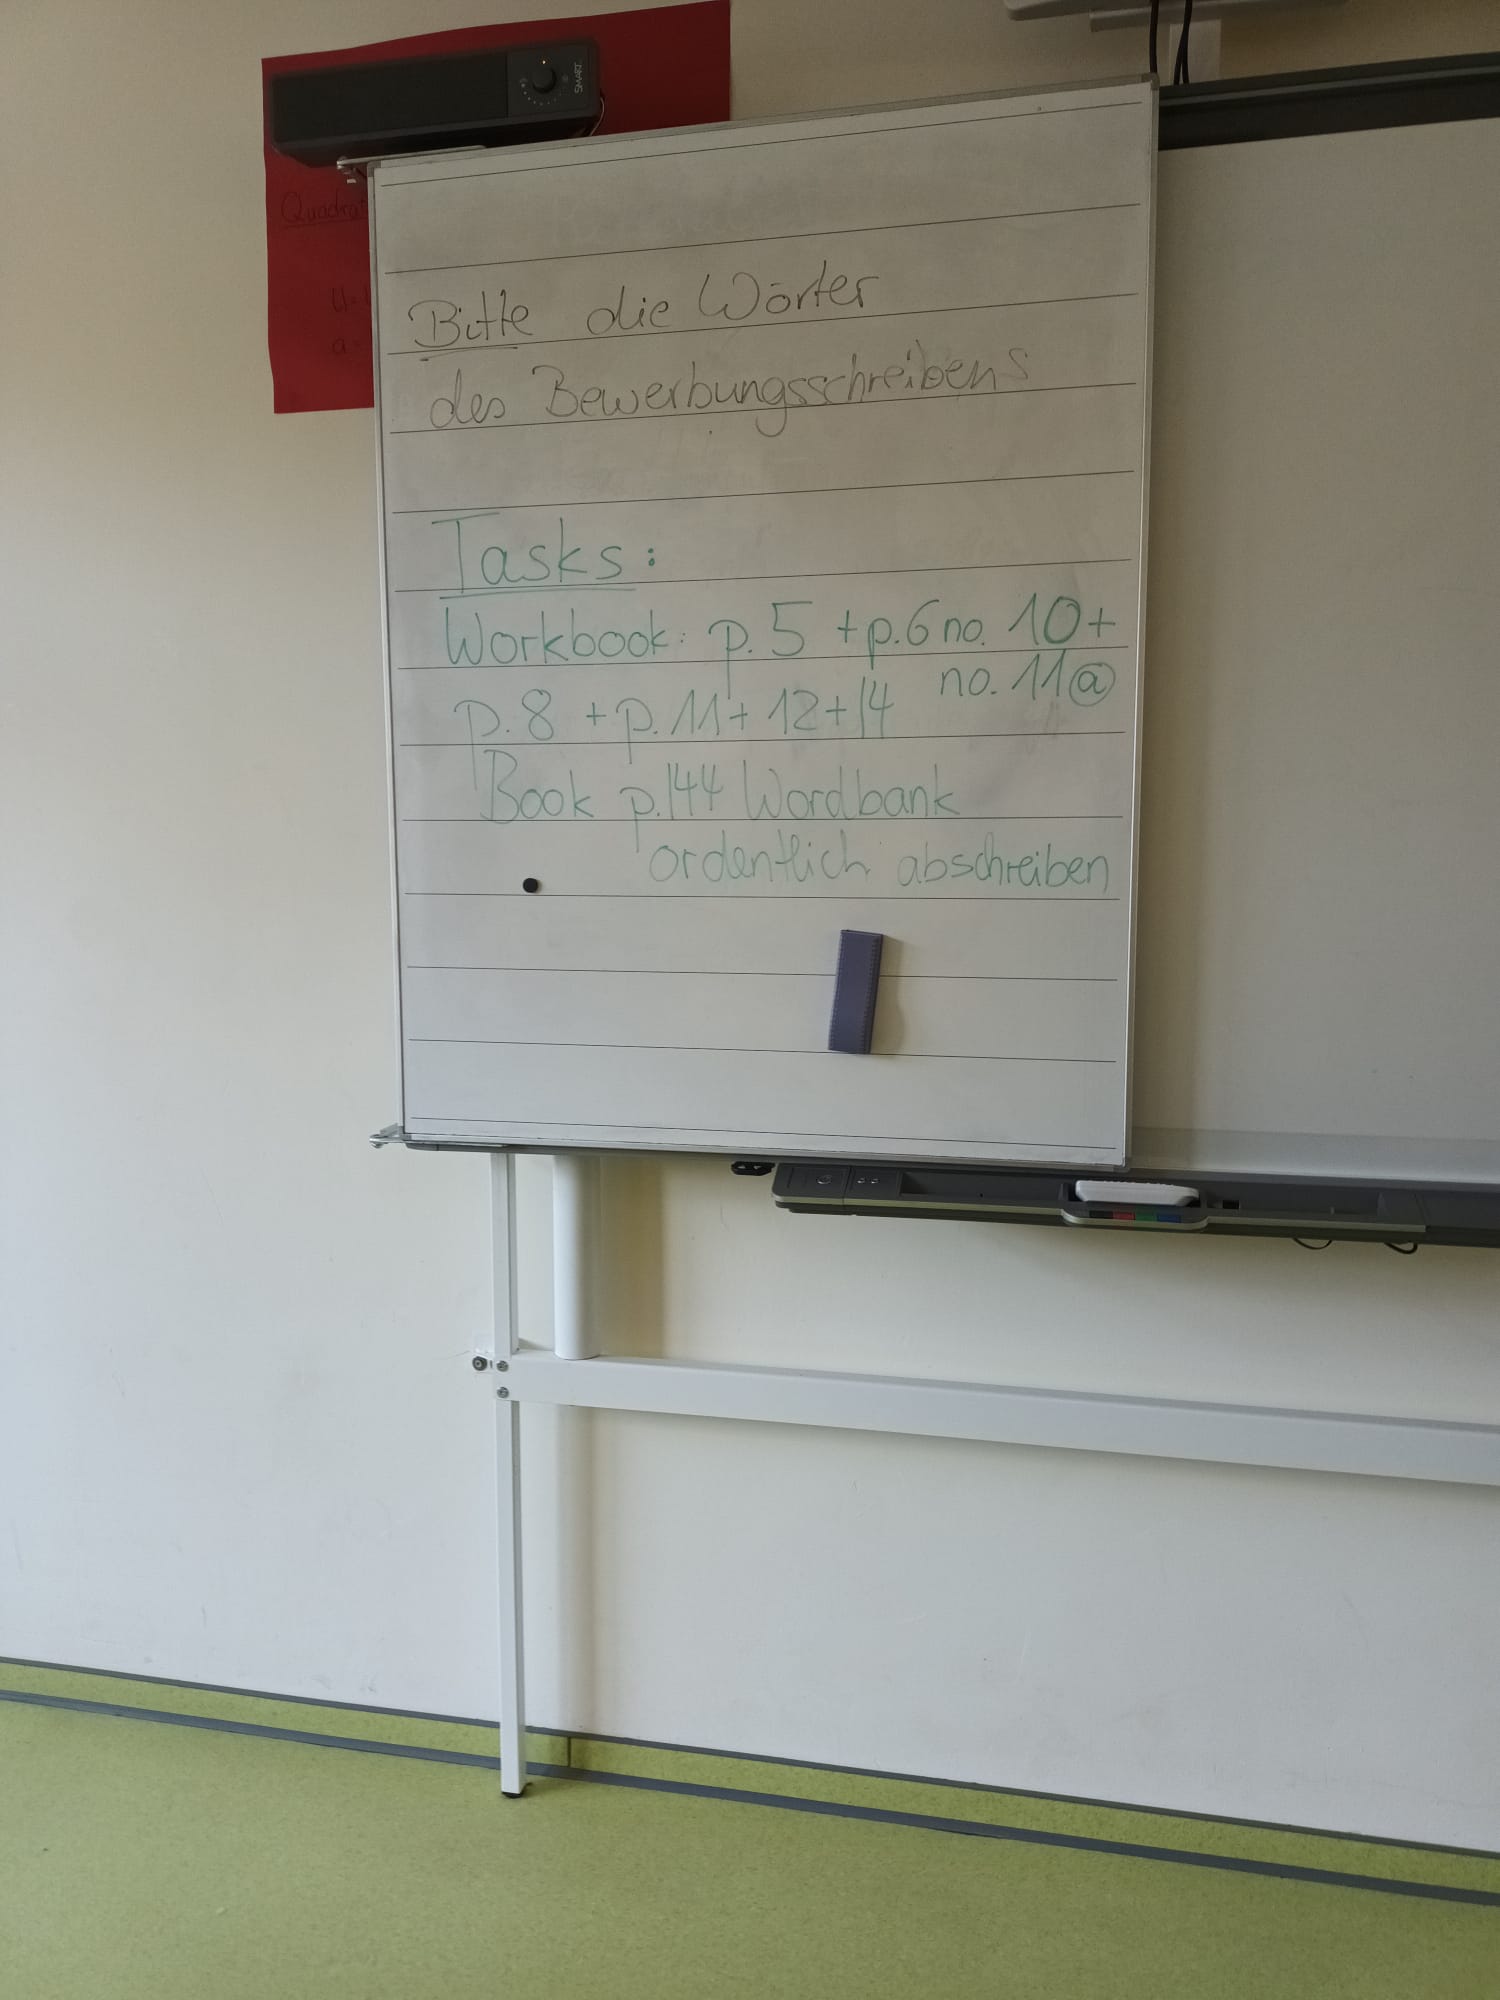 SMART
Quadrat
U=
a=
Bitte die Wörter
des Bewerbungsschreibens
Tasks:
Workbook: p. 5 + p. 6 no. 10 +
no. 11 ⓐ
p. 8 + p. 11 + 12 + 14
Book p. 144 Wordbank
ordentlich abschreiben